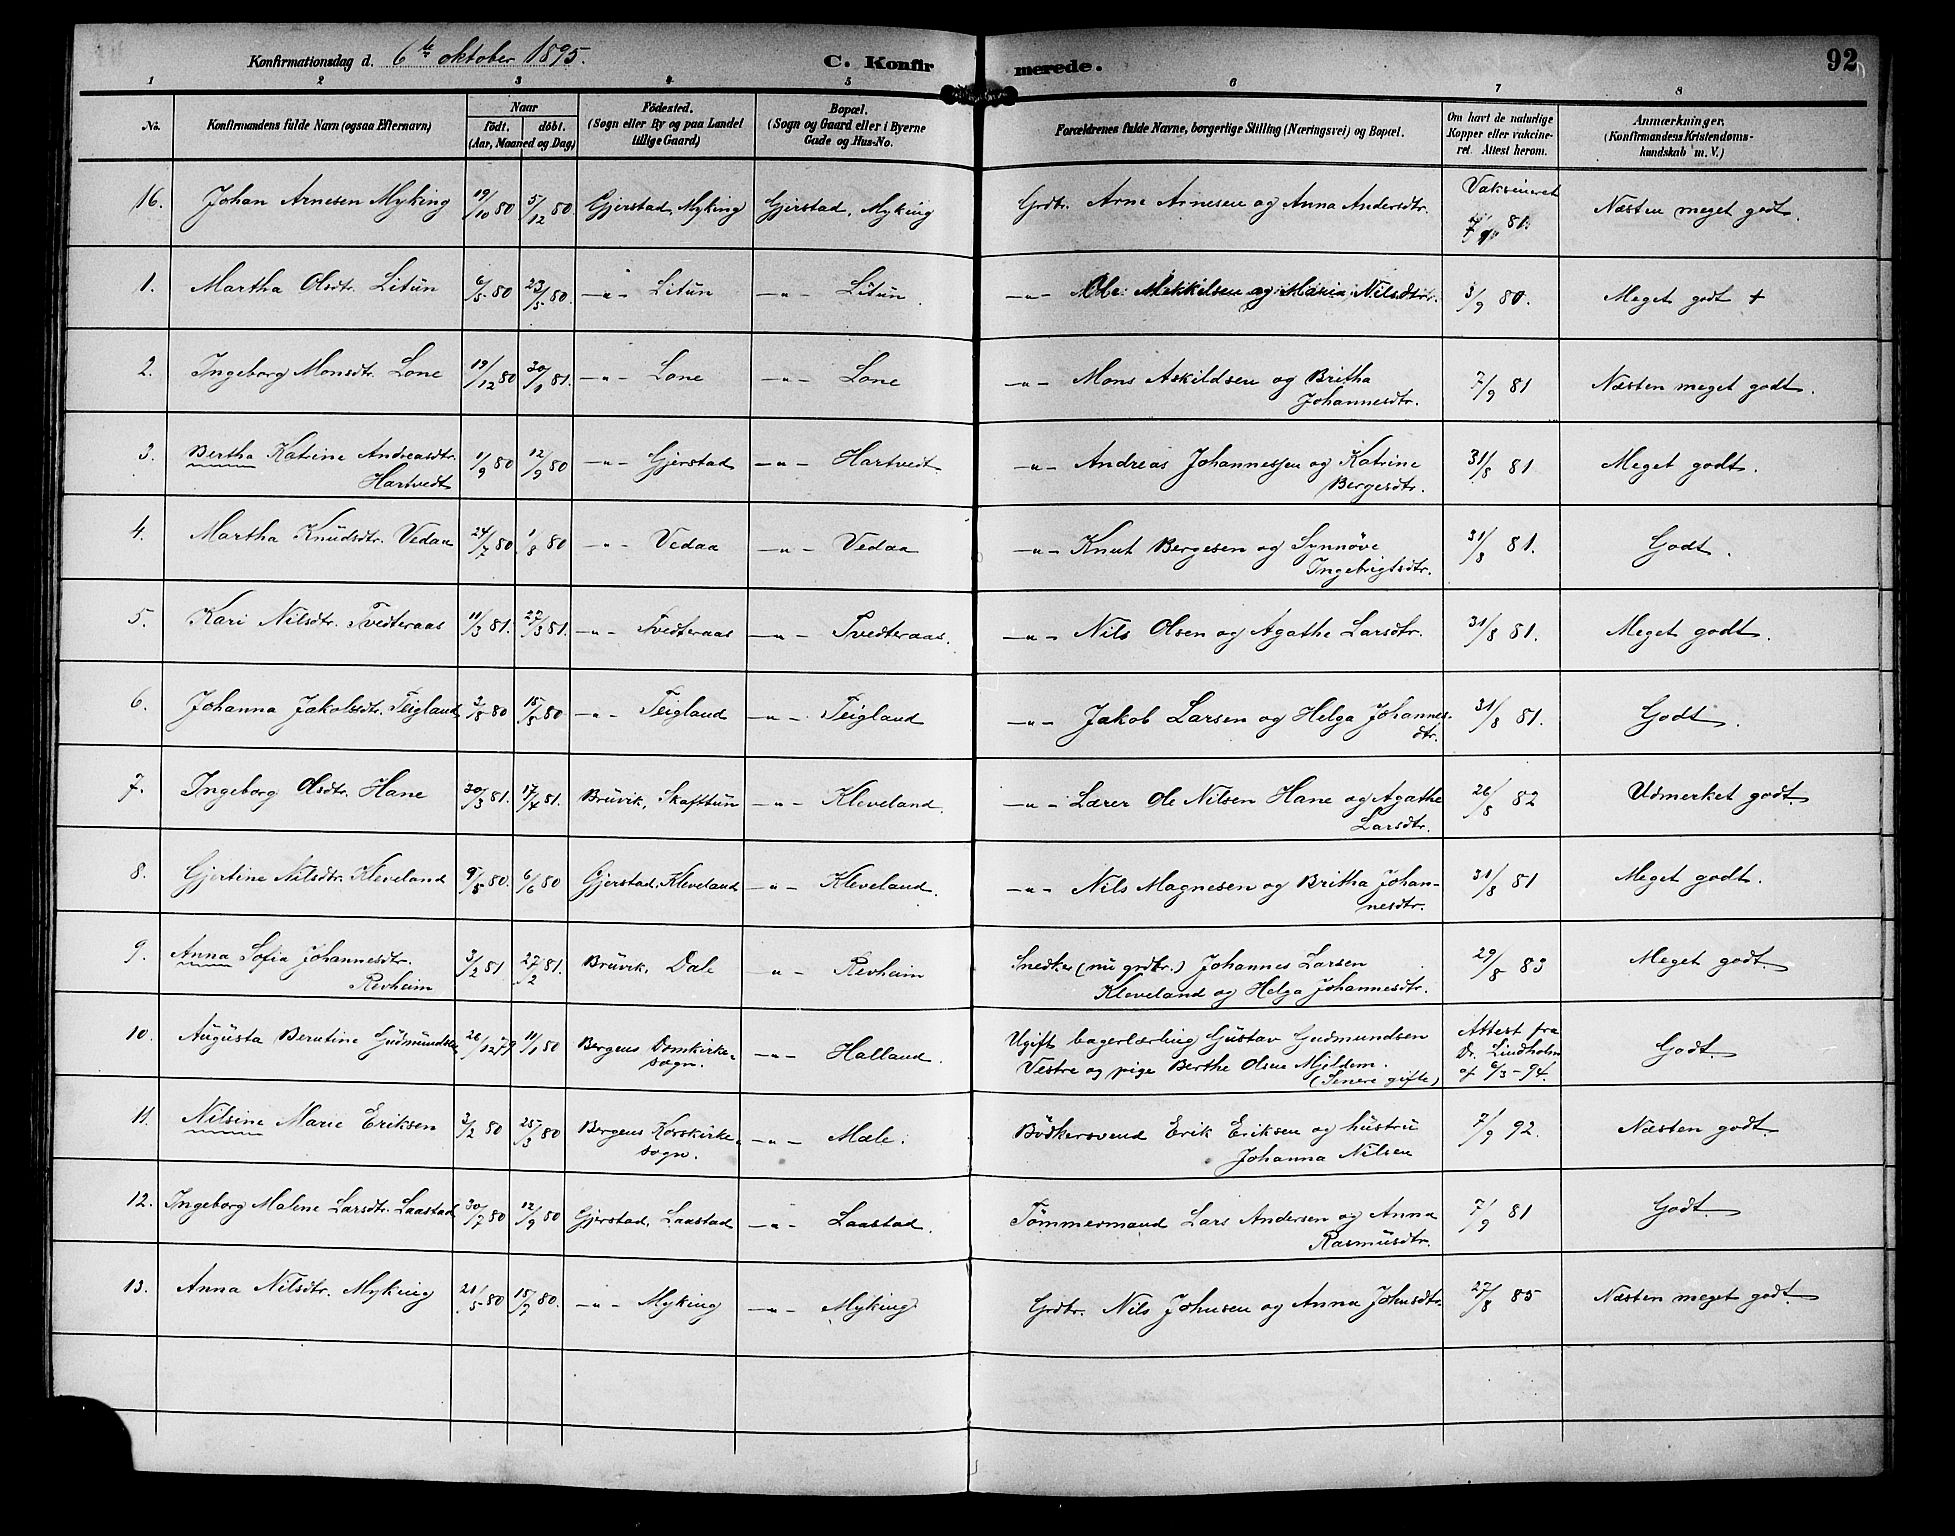 Konfirmationsdag d. 6te oktober 1895. C. Konfirmerede. 92
1 2 3 4 5 6 7 8
No. Konfirmandens fulde Navn (ogsaa Efternavn) Naar födt. döbt. (Aar, Maaned og Dag) Födested. (Sogn eller By og paa Landet tillige Gaard) Bopæl. (Sogn og Gaard eller i Byerne Gade og Hus-No. Forældrenes fulde Navne, borgerlige Stilling (Næringsvei) og Bopæl. Om havt de naturlige Kopper eller vakcineret. Attest herom. Anmærkninger. (Konfirmandens Kristendomskundskab m. V.)
16. Johan Arnesen Myking 19/10 80 5/12 80 Gjerstad, Myking Gjerstad, Myking Grdbr. Arne Arnesen og Anna Andersdtr. Vaksineret 81 Næsten meget godt.
1. Martha Olsdtr. Litun 6/5 80 23/5 80. -"- Litun -"- Litun. -"- Ole Mikkelsen og Maria Nilsdtr. 3/9 80. Meget godt +
2. Ingeborg Monsdtr. Lone 19/12 80 30/1 81. -"- Lone -"- Lone -"- Mons Askildsen og Britha
Johannesdtr. 7/9 81 Næsten meget godt.
3. Bertha Katrine Andreasdtr.
Hartvedt 1/9 80 12/9 80 -"- Gjerstad -"- Hartvedt -"- Andreas Johannessen og Katrine
Bergesdtr. 31/8 81 Meget godt.
4. Martha Knudsdtr. Vedaa 24/7 80 1/8 80 -"- Vedaa -"- Vedaa -"- Knut Bergesen og Synnöve
Ingebrigtsdtr. 31/8 81. Godt.
5. Kari Nilsdtr. Tvedteraas 11/3 81. 27/3 81. -"- Tvedteraas -"- Tvedteraas. -"- Nils Olsen og Agathe Larsdtr. 31/8 81. Meget godt.
6. Johanna Jakobsdtr. Teigland 3/8 80 15/8 80 -"- Teigland -"- Teigland -"- Jakob Larsen og Helga Johannes-
dtr. 31/8 81. Godt.
7. Ingeborg Olsdtr. Hane 30/3 81. 17/4 81. Bruvik, Skafttun -"- Kleveland. -"- Lærer Ole Nilsen Hane og Agathe
Larsdtr. 26/8 82 Udmerket godt.
8. Gjertine Nilsdtr. Kleveland 9/5 80. 6/6 80 Gjerstad, Kleveland -"- Kleveland. -"- Nils Magnesen og Britha Johan-
nesdtr. 31/8 81 Meget godt.
9. Anna Sofia Johannesdtr.
Revheim 3/2 81 27/2 81. Bruvik, Dale -"- Revheim Snedker (nu grdbr.) Johannes Larsen
Kleveland og Helga Johannesdtr. 29/8 83 Meget godt.
10. Augusta Berntine Gudmundsen 26/12 79 11/1 80 Bergens Domkirke-
sogn. -"- Halland. Ugift bagerlærling Gustav Gudmundsen
Vestre og pige Berthe Olsen Mjeldem.
(Senere gifte) Attest fra
Dr. Lindholm
af 6/3-94. Godt.
11. Nilsine Marie Eriksen 3/2 80 25/3 80 Bergens Korskirke-
sogn. -"- Mæle. Bödkersvend Erik Eriksen og hustru
Johanna Nilsen 7/9 92. Næsten godt.
12. Ingeborg Malene Larsdtr. Laastad 30/7 80 12/9 80 Gjerstad, Laastad -"- Laastad. Tömmermand Lars Andersen og Anna
Rasmusdtr. 7/9 81 Godt.
13. Anna Nilsdtr. Myking 21/5 80 18/7 80. -"- Myking -"- Myking Grdbr. Nils Johnsen og Anna Johnsdtr. 27/8 85 Næsten meget godt.